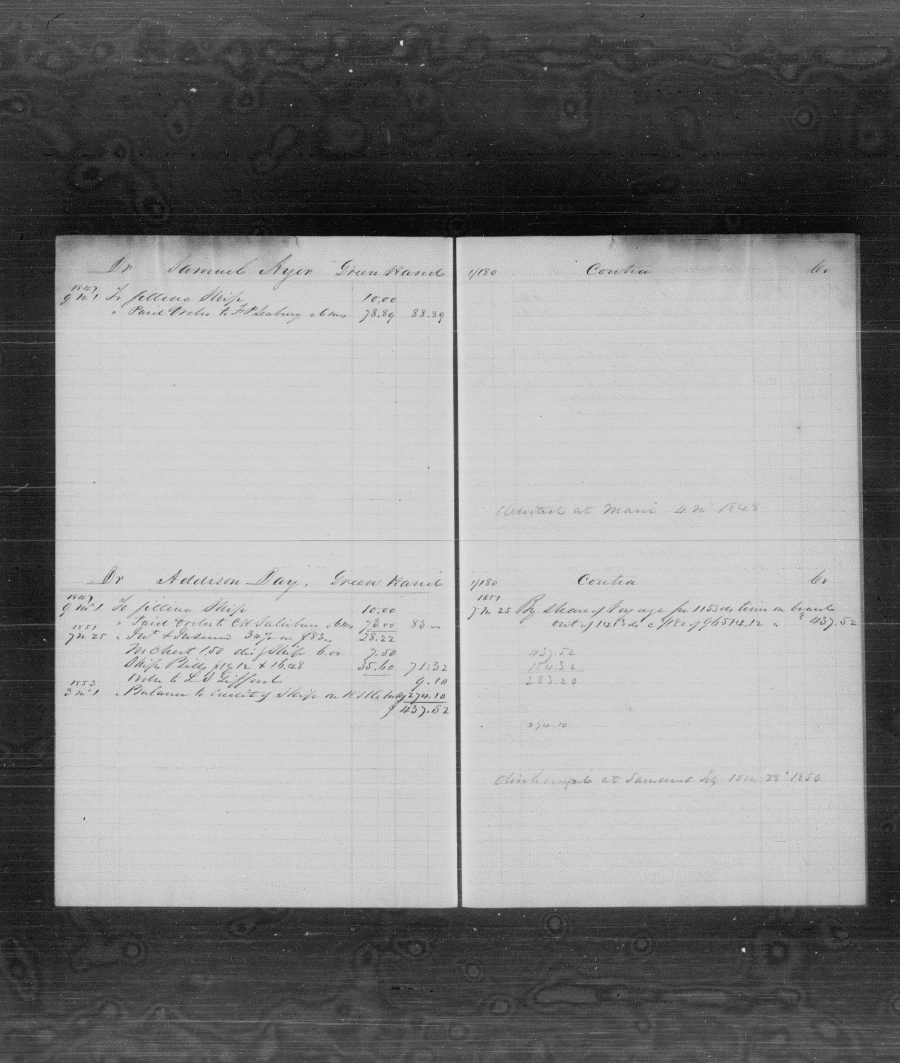 Dr Samuel Ayer Green Hand
1847
9 m 1 To fitting Ship 10.00
" Paid Order to 78.89 88.89
1/180 Contra Cr
Deserted at Maui 4 m 1848
Dr Addison Day. Green Hand
1847
9 m 1 To fitting Ship 10.00
" Paid order C H Salisbury 73.00 83
1851
7 m 25 " Int & Insurance 34% on $83 28.22
M Chest 1.50 Ship 6.00 7.50
Ship Bill 19.12 & 16.48 35.60 71.32
Order to L S Gifford 9.10
1853
3 m 1 " Balance to credit of Ship on 274.10
$ 437.52
1/180 Contra Cr
1851
7 m 25 By share of Voyage for 1153 ds time on board
out of 1423 ds 1/180 of 96514.12 " $ 437.52
437.52
154.32
283.20
274.10
Discharged at 10 m 28 1850